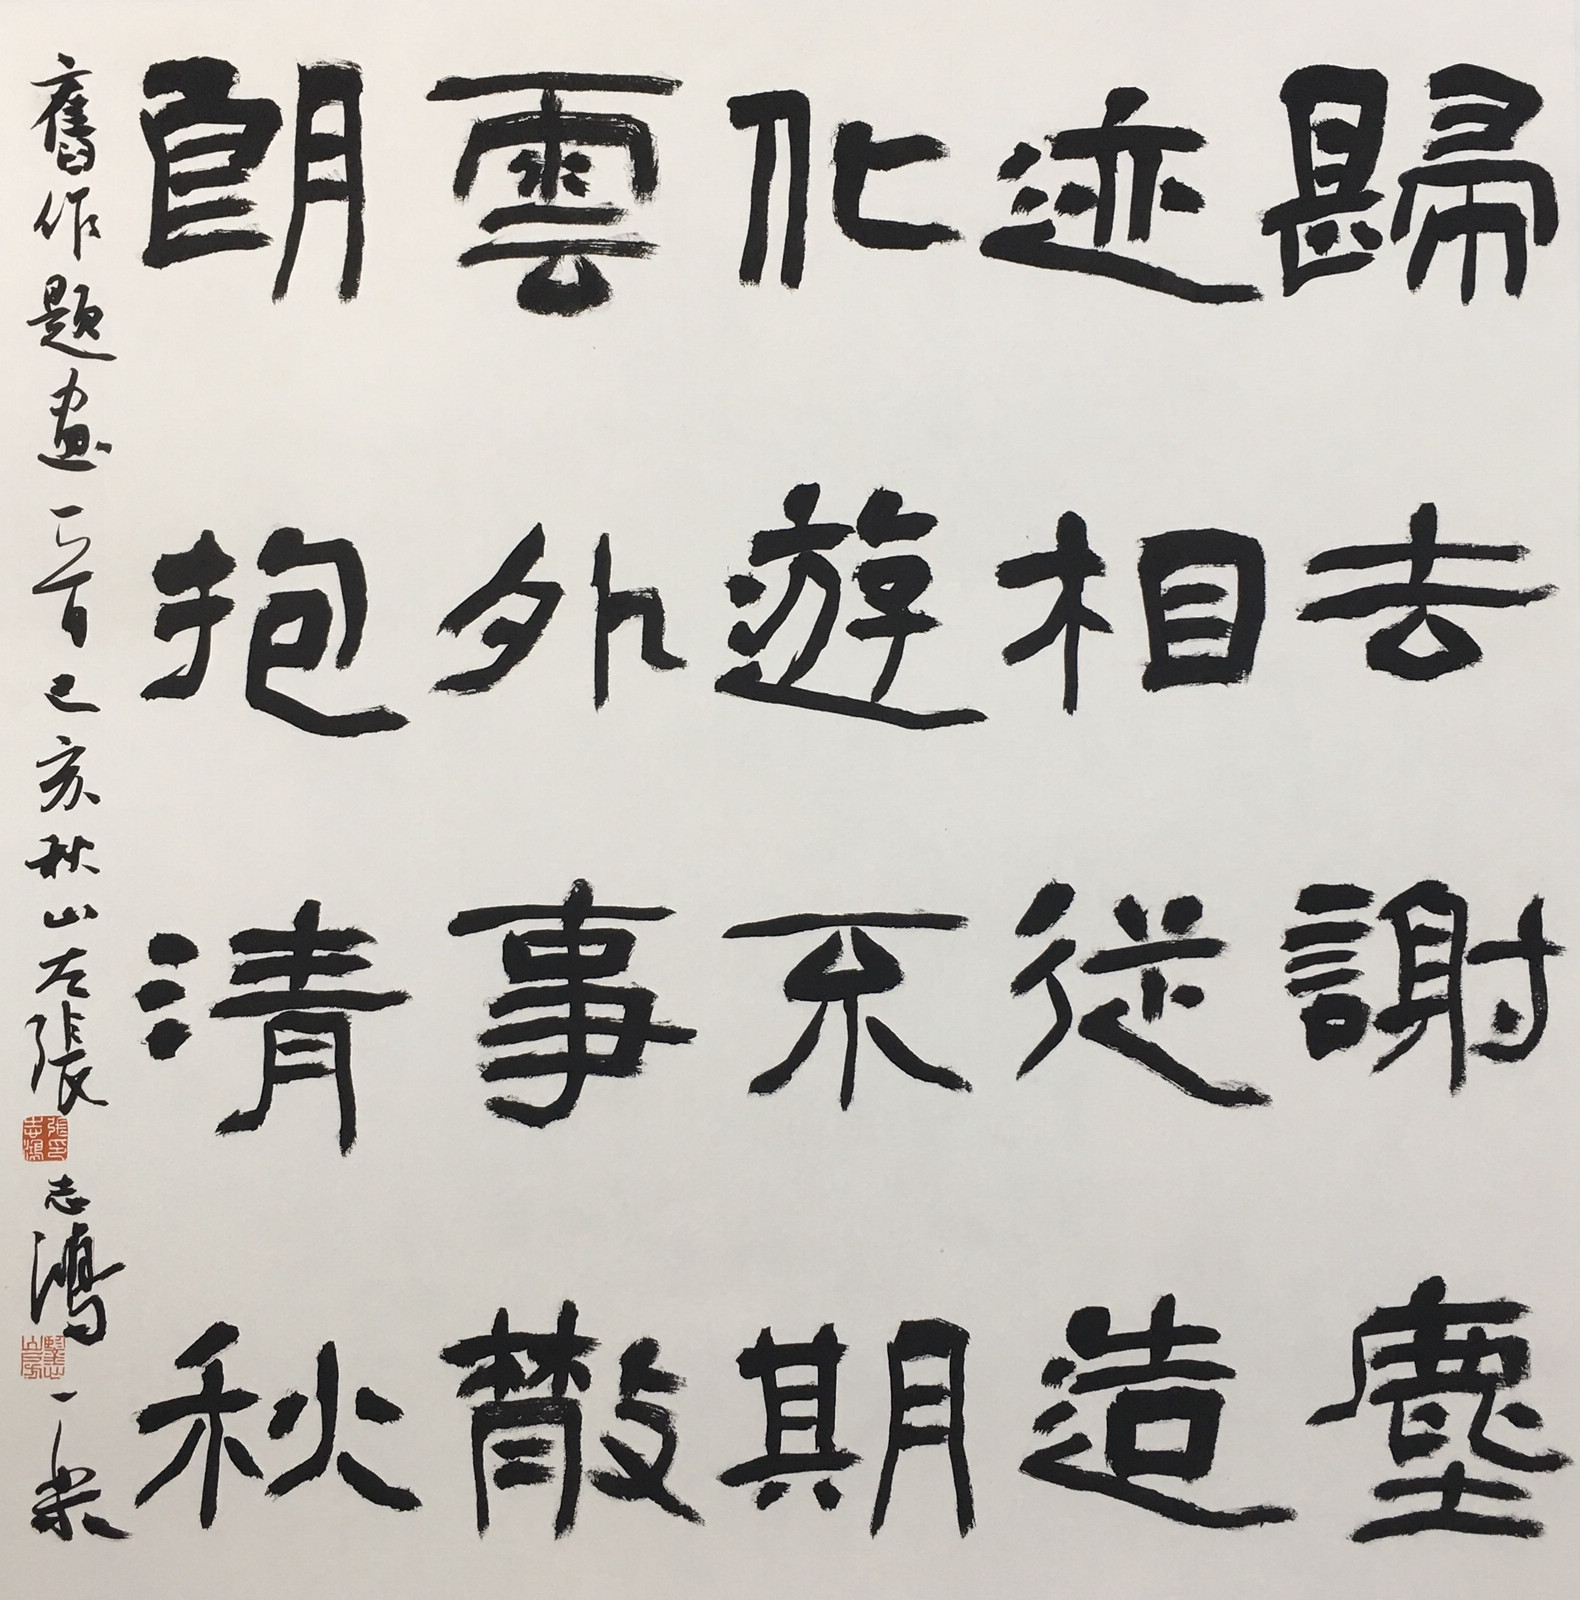 歸去謝塵
迹相從造
化遊不期
雲外事散
朗抱清秋
舊作題畫一首己亥秋山左張志鴻
張志鴻印